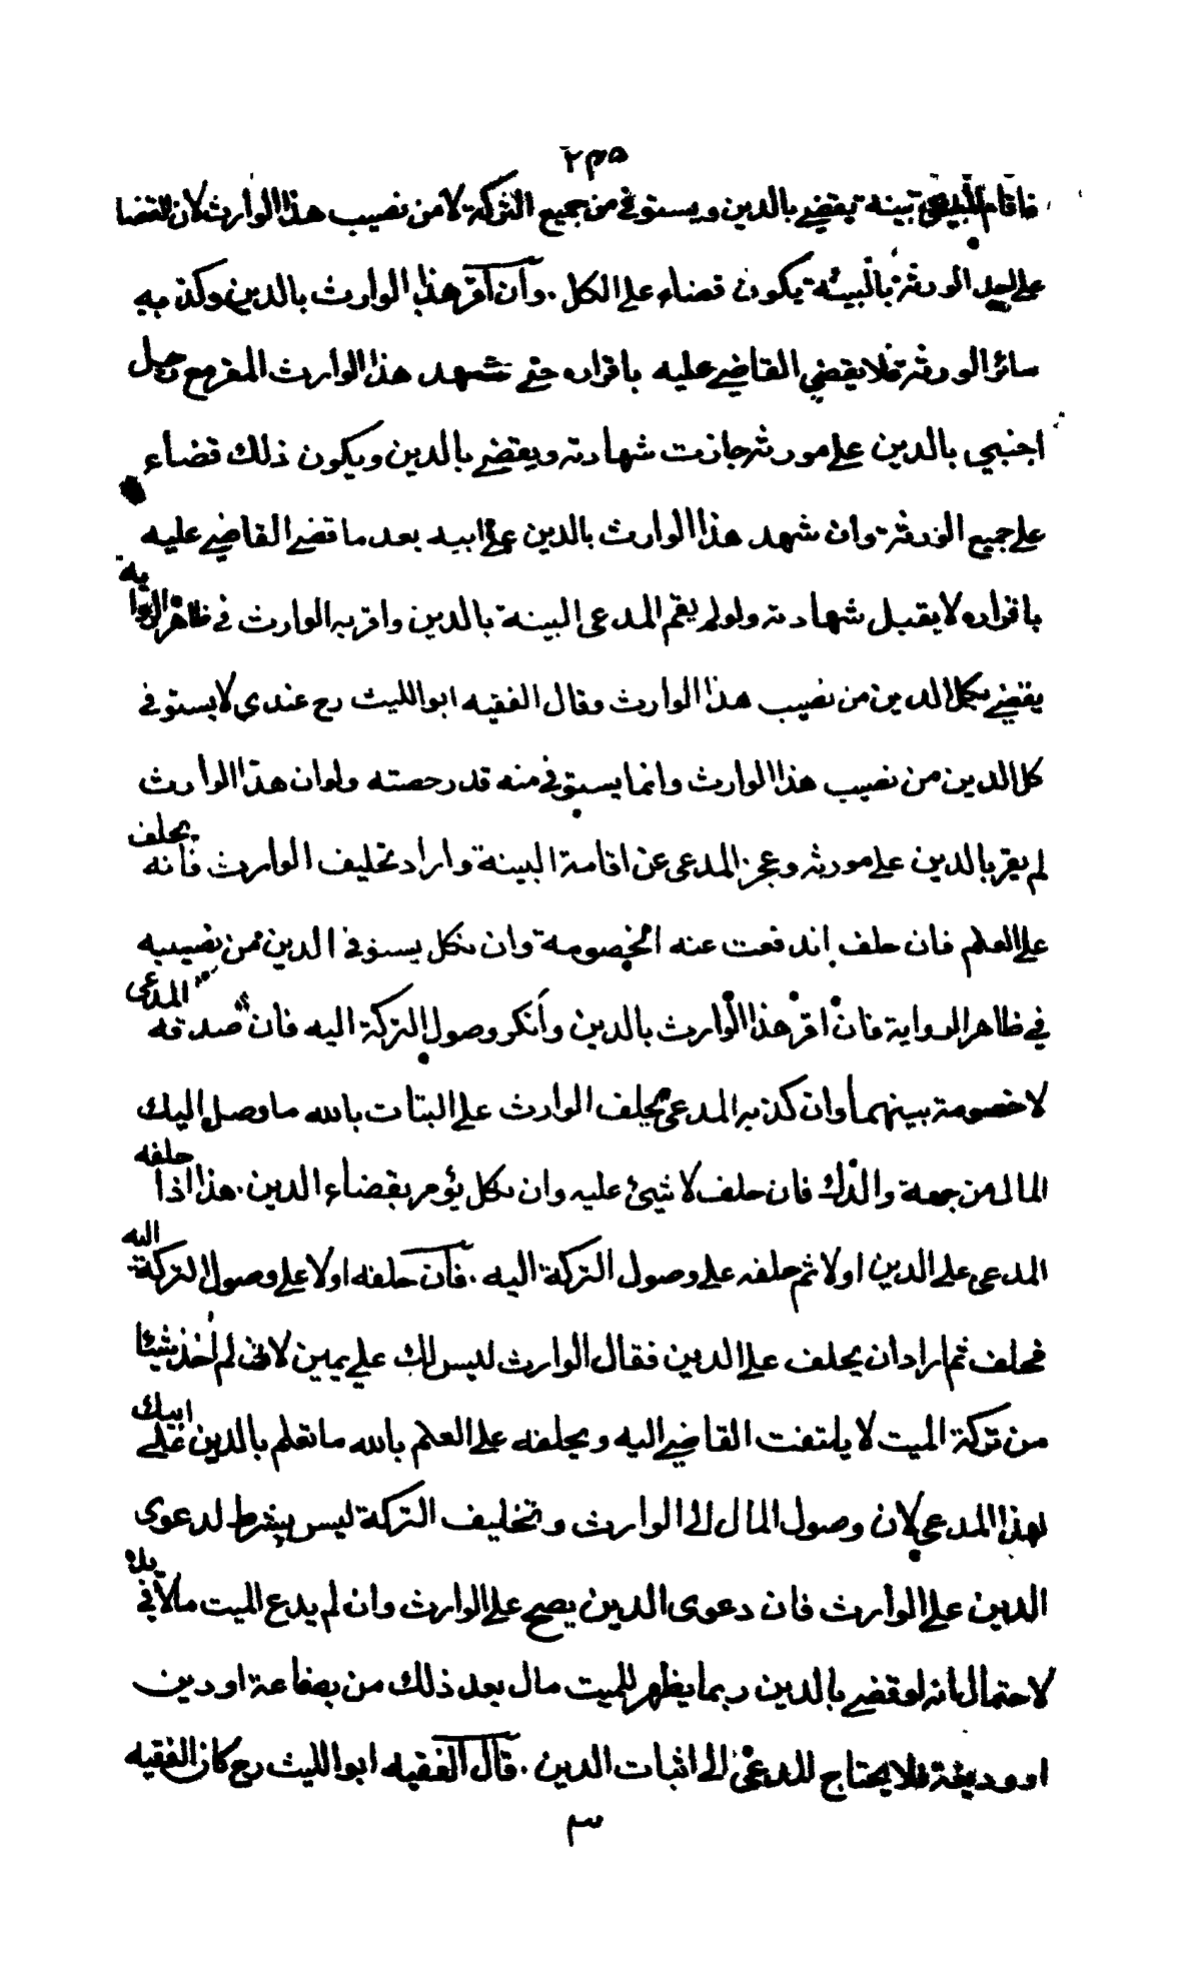 ٢٣٥
فاقام المدعي بينة يقضي بالدين ويستوفى من جميع التركة لا من نصيب هذا الوارث لان القضا
على احد الورثة بالبينة يكون قضاء على الكل . وان اقر هذا الوارث بالدين وكذبه
سائر الورثة فلا يقضي القاضي عليه باقراره حتى شهد هذا الوارث المقر مع رجل
اجنبي بالدين على مورثه جازت شهادته ويقضي بالدين ويكون ذلك قضاء
على جميع الورثة وان شهد هذا الوارث بالدين على ابيه بعد ما قضى القاضي عليه
باقراره لا يقبل شهادته ولو لم يقم المدعى البينة بالدين واقر به الوارث في ظاهر الرواية
يقضي بكل الدين من نصيب هذا الوارث وقال الفقيه ابو الليث رح عندي لا يستوفى
كل الدين من نصيب هذا الوارث وانما يستوفى منه قدر حصته ولو ان هذا الوارث
لم يقر بالدين على مورثه وعجز المدعى عن اقامة البينة واراد تحليف الوارث فانه يحلف
على العلم فان حلف اندفعت عنه الخصومة وان نكل يستوفى الدين من نصيبه
في ظاهر الرواية فان اقر هذا الوارث بالدين وانكر وصول التركة اليه فان صدقه المدعى
لا خصومة بينهما وان كذبه المدعى يحلف الوارث على البتات بالله ما وصل اليك
المال من جهة والدك فان حلف لا شيئ عليه وان نكل يؤمر بقضاء الدين . هذا اذا حلفه
المدعى على الدين اولا ثم حلفه على وصول التركة اليه . فان حلفه اولا على وصول التركة اليه
فحلف ثم اراد ان يحلف على الدين فقال الوارث ليس لك علي يمين لاني لم اخذ شيئا
من تركة الميت لا يلتفت القاضي اليه ويحلفه على العلم بالله ما تعلم بالدين على ابيك
لهذا المدعي لان وصول المال الى الوارث وتخليف التركة ليس بشرط لدعوى
الدين على الوارث فان دعوى الدين يصح على الوارث وان لم يدع الميت مالا في يده
لاحتمال انه لو قضى بالدين ربما يظهر للميت مال بعد ذلك من بضاعة او دين
او وديعة فلا يحتاج المدعى الى اثبات الدين . قال الفقيه ابو الليث رح كان الفقيه